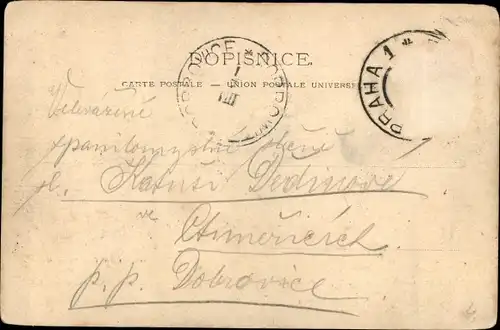 DOPISNICE.
CARTE POSTALE — UNION POSTALE UNIVERSE
DOBROVICE * DOBROWI
PRAHA 1 *
Velevážené
spanilomyslné slečně
sl. Katuši Dedinove
ve
Ctiměřicích
p. p. Dobrovice